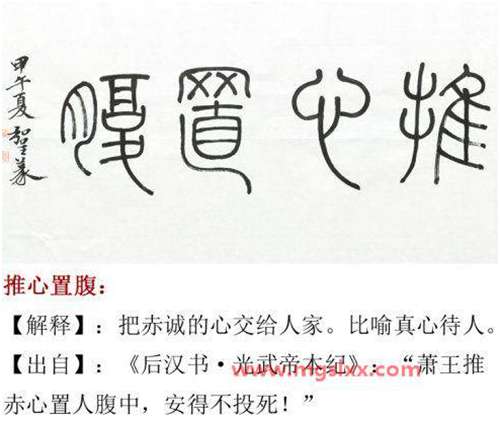 推心置腹
甲午夏
推心置腹：
【解释】：把赤诚的心交给人家。比喻真心待人。
【出自】：《后汉书·光武帝本纪》：“萧王推
赤心置人腹中，安得不投死！”
www.mgalxx.com